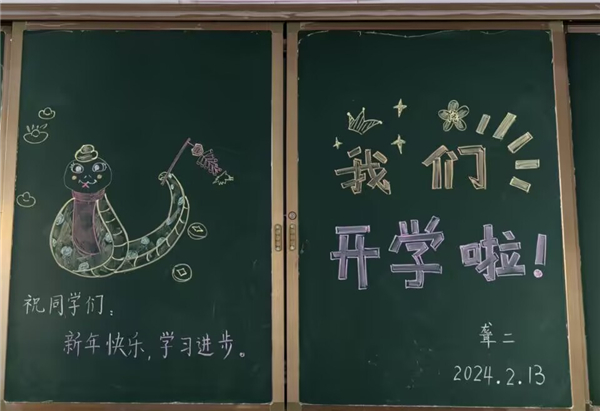 祝同学们：
新年快乐，学习进步。
我们
开学啦！
聋二
2024.2.13